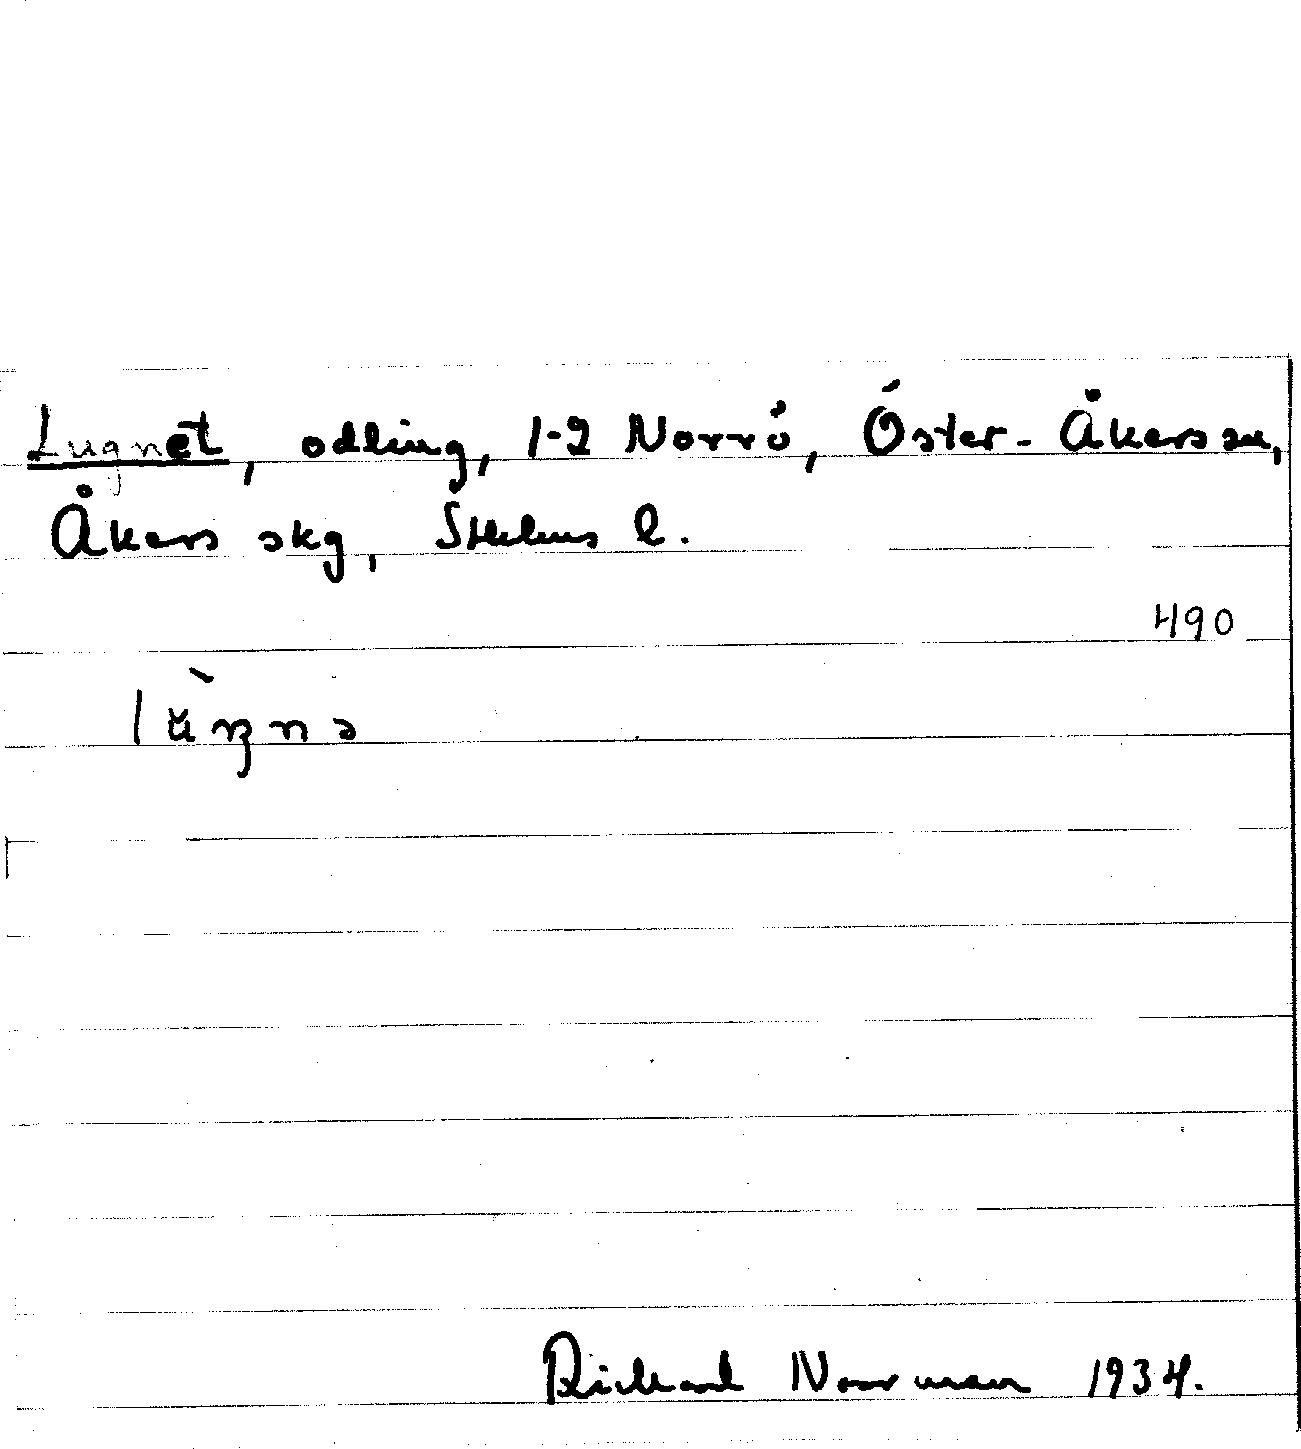 Lugnet, odling, 1-2 Norrö, Öster-Åkers sn,
Åkers skg, Sthlms l.
490
lu̇̀ŋnə
Richard Norrman 1934.